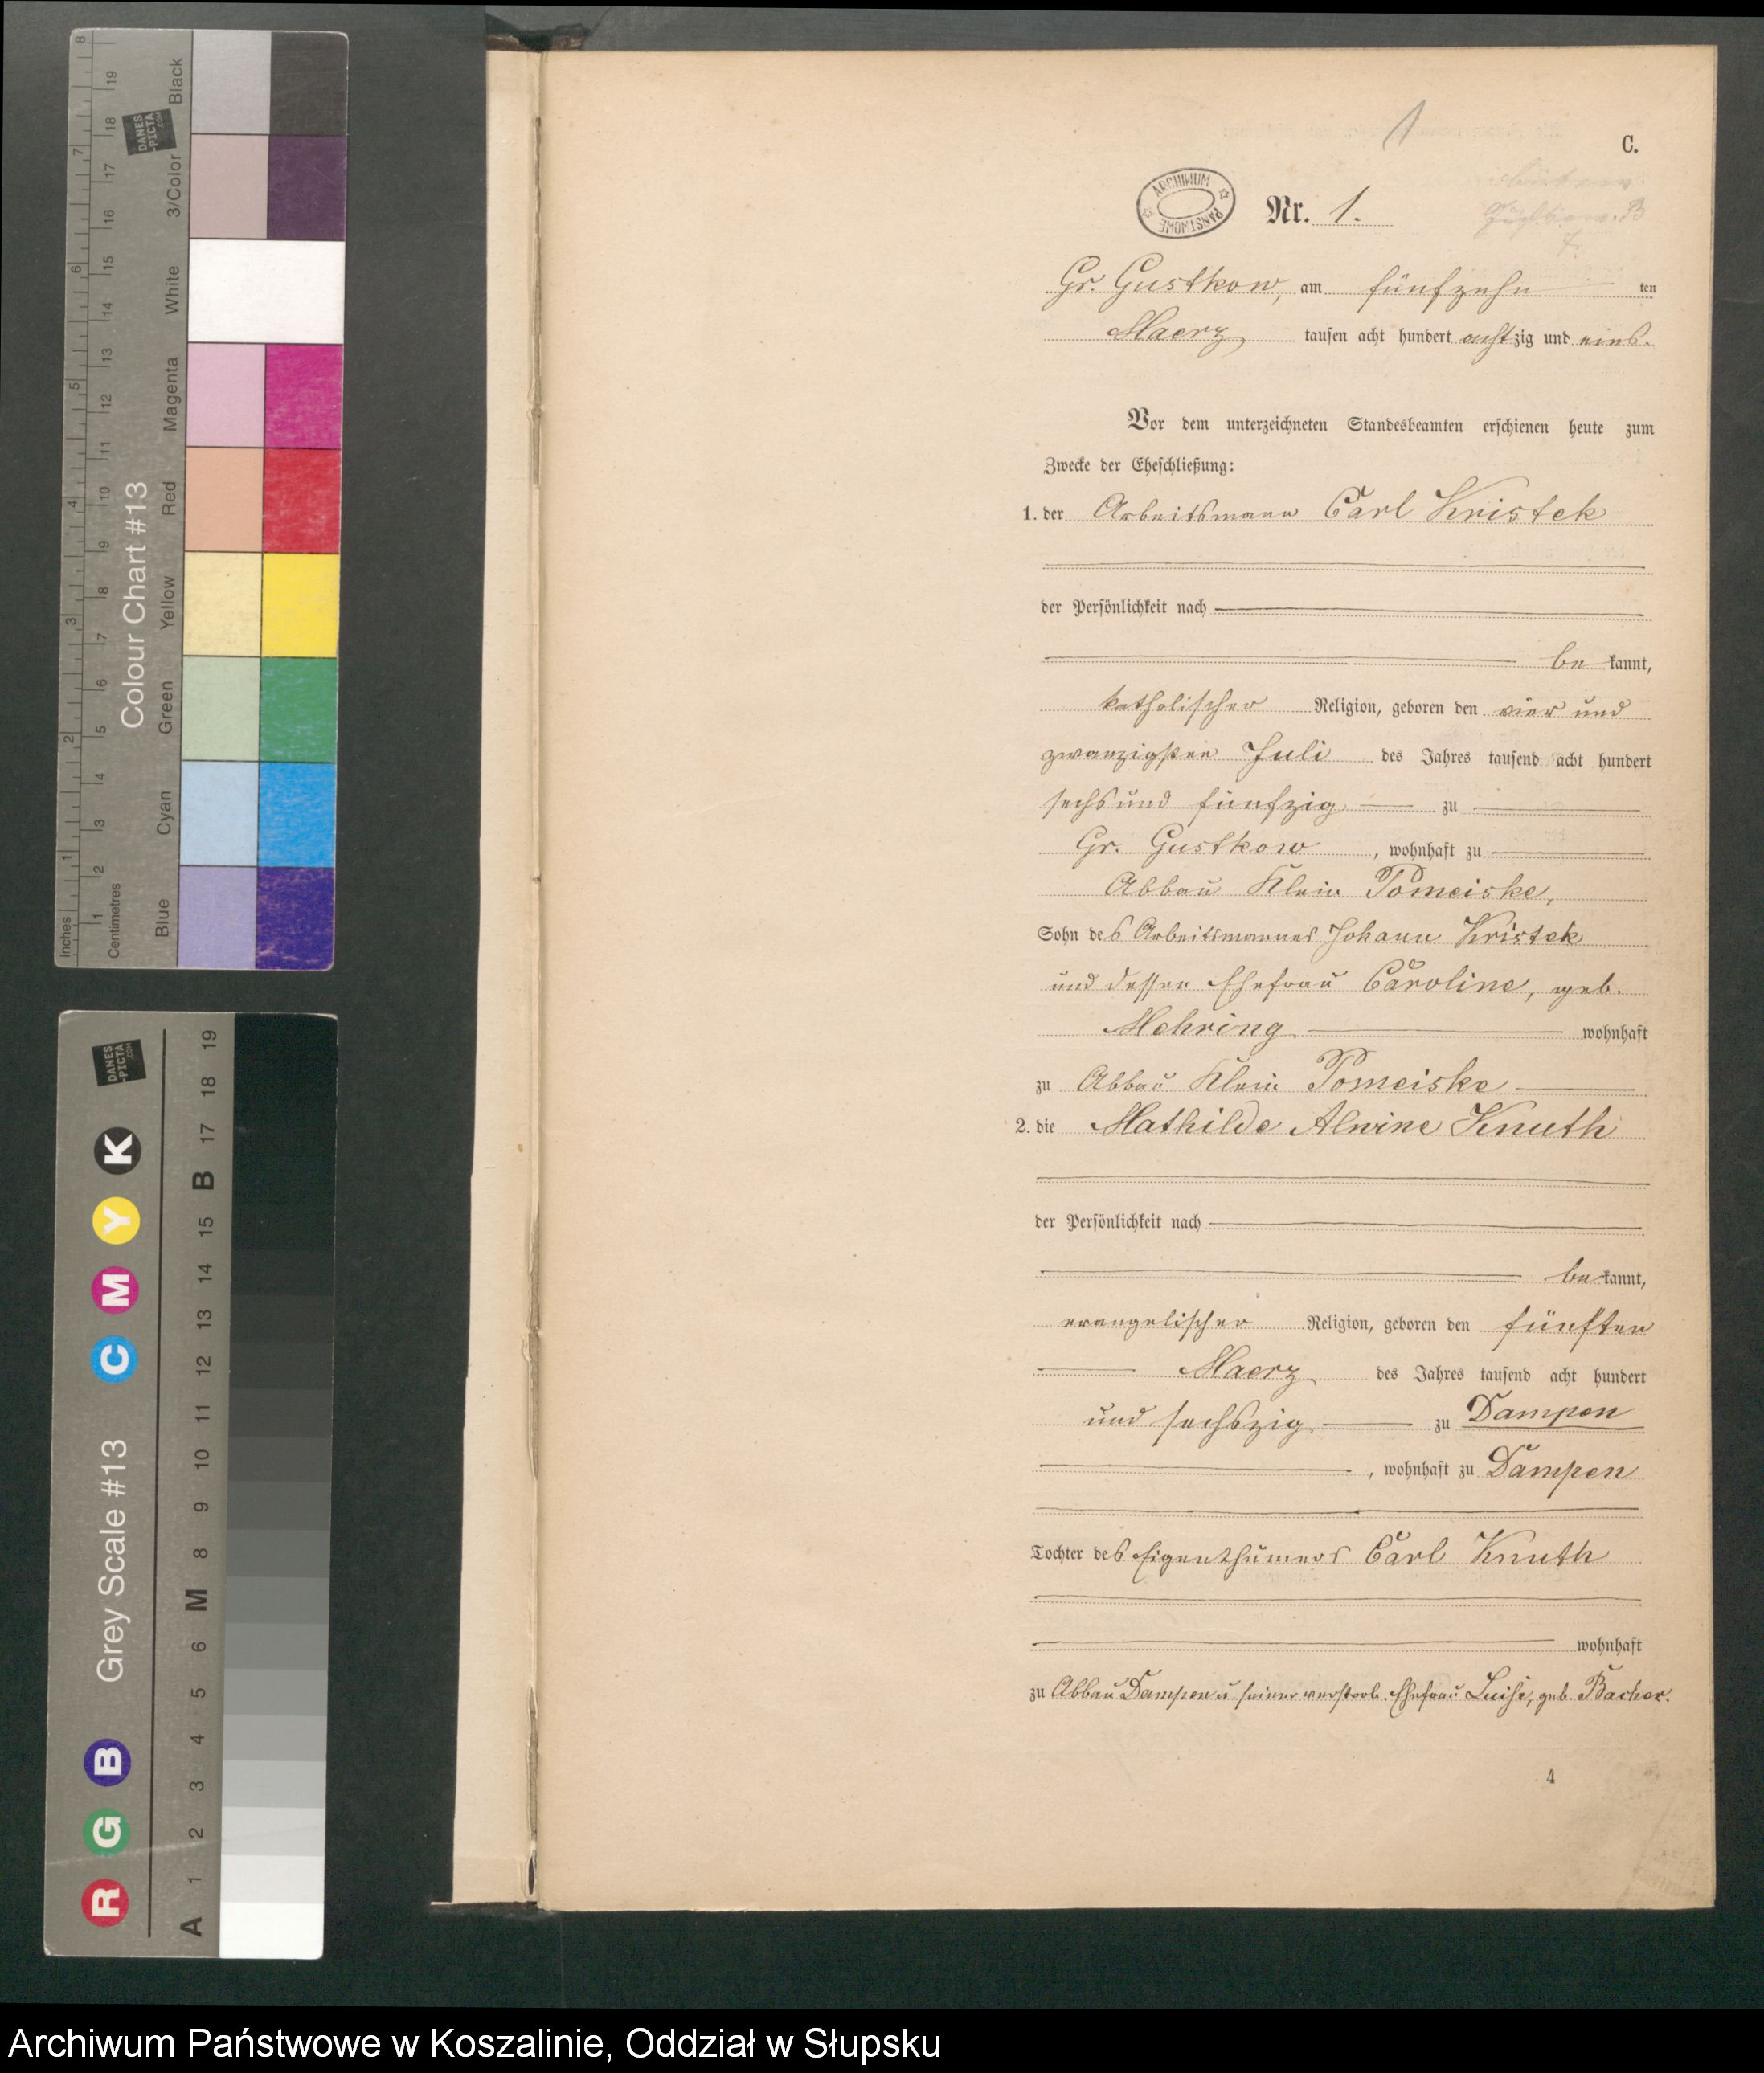 C.
ARCHIWUM PAŃSTWOWE
Nr. 1.
Gr. Gustkow, am fünfzehn ten
Maerz tausen acht hundert achtzig und eins.
Vor dem unterzeichneten Standesbeamten erschienen heute zum
Zwecke der Eheschließung:
1. der Arbeitsmann Carl Kristek
der Persönlichkeit nach
be kannt,
katholischer Religion, geboren den vier und
zwanzigsten Juli des Jahres tausend acht hundert
sechs und fünfzig zu
Gr. Gustkow, wohnhaft zu
Abbau Klein Pomeiske,
Sohn des Arbeitsmannes Johann Kristek
und dessen Ehefrau Caroline, geb.
Mehring wohnhaft
zu Abbau Klein Pomeiske
2. die Mathilde Alwine Knuth
der Persönlichkeit nach
be kannt,
evangelischer Religion, geboren den fünften
Maerz des Jahres tausend acht hundert
und sechszig zu Dampen
, wohnhaft zu Dampen
Tochter des Eigenthümers Carl Knuth
wohnhaft
zu Abbau Dampen u seiner verstorb. Ehefrau Luise, geb. Bacher.
4
Inches
1
2
3
4
5
6
7
8
Centimetres
1
2
3
4
5
6
7
8
9
10
11
12
13
14
15
16
17
18
19
Colour Chart #13
Blue
Cyan
Green
Yellow
Red
Magenta
White
3/Color
Black
DANES
-PICTA
.COM
Grey Scale #13
R G B C M Y K
DANES
-PICTA
.COM
A 1 2 3 4 5 6 M 8 9 10 11 12 13 14 15 B 17 18 19
Archiwum Państwowe w Koszalinie, Oddział w Słupsku